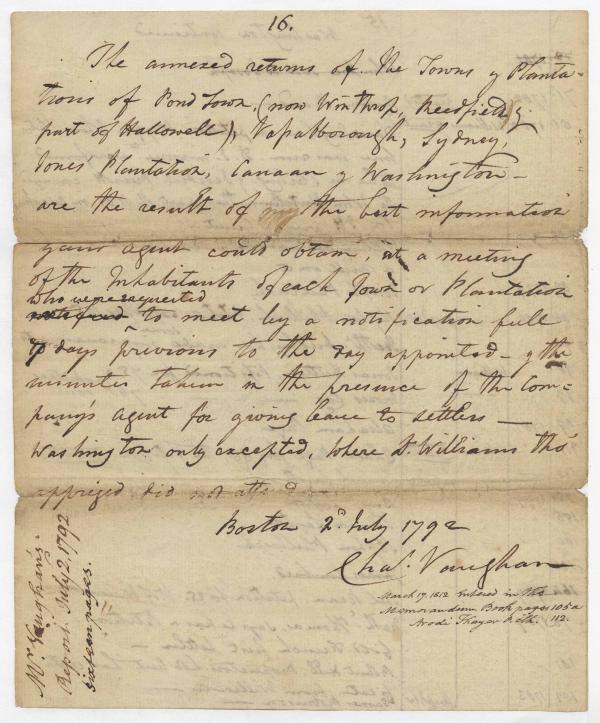 16.
The annexed returns of the Towns & Planta-
tions of Pond Town, (now Winthrop, Readfield &
part of Hallowell), Vassalborough, Sydney,
Jones' Plantation, Canaan & Washington —
are the result of the best information
your agent could obtain, at a meeting
of the Inhabitants of each Town or Plantation
who were requested
to meet by a notification full
7 days previous to the day appointed — & the
minutes taken in the presence of the Com-
pany's agent for giving leave to settlers —
Washington only excepted, where Dr. Williams tho'
apprized did not attend
Boston 2d. July 1792
Chas. Vaughan
March 17, 1812 entered in the
Memorandum Book pages 105 a
Arodi Thayer Clk. 112.
Mr. Vaughan's
Report. July 2, 1792
Sixteen pages.